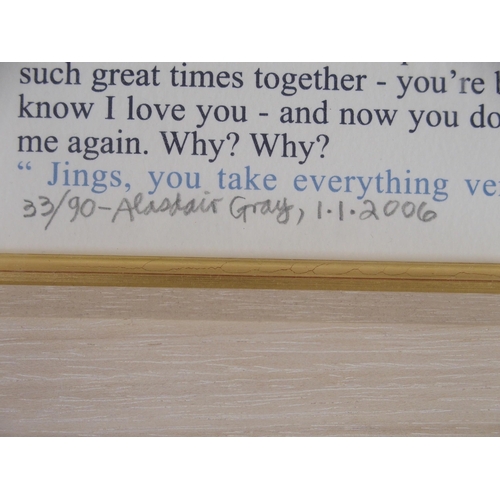 such great times together - you're
know I love you - and now you do
me again. Why? Why?
“ Jings, you take everything
33/90-Alasdair Gray, 1.1.2006